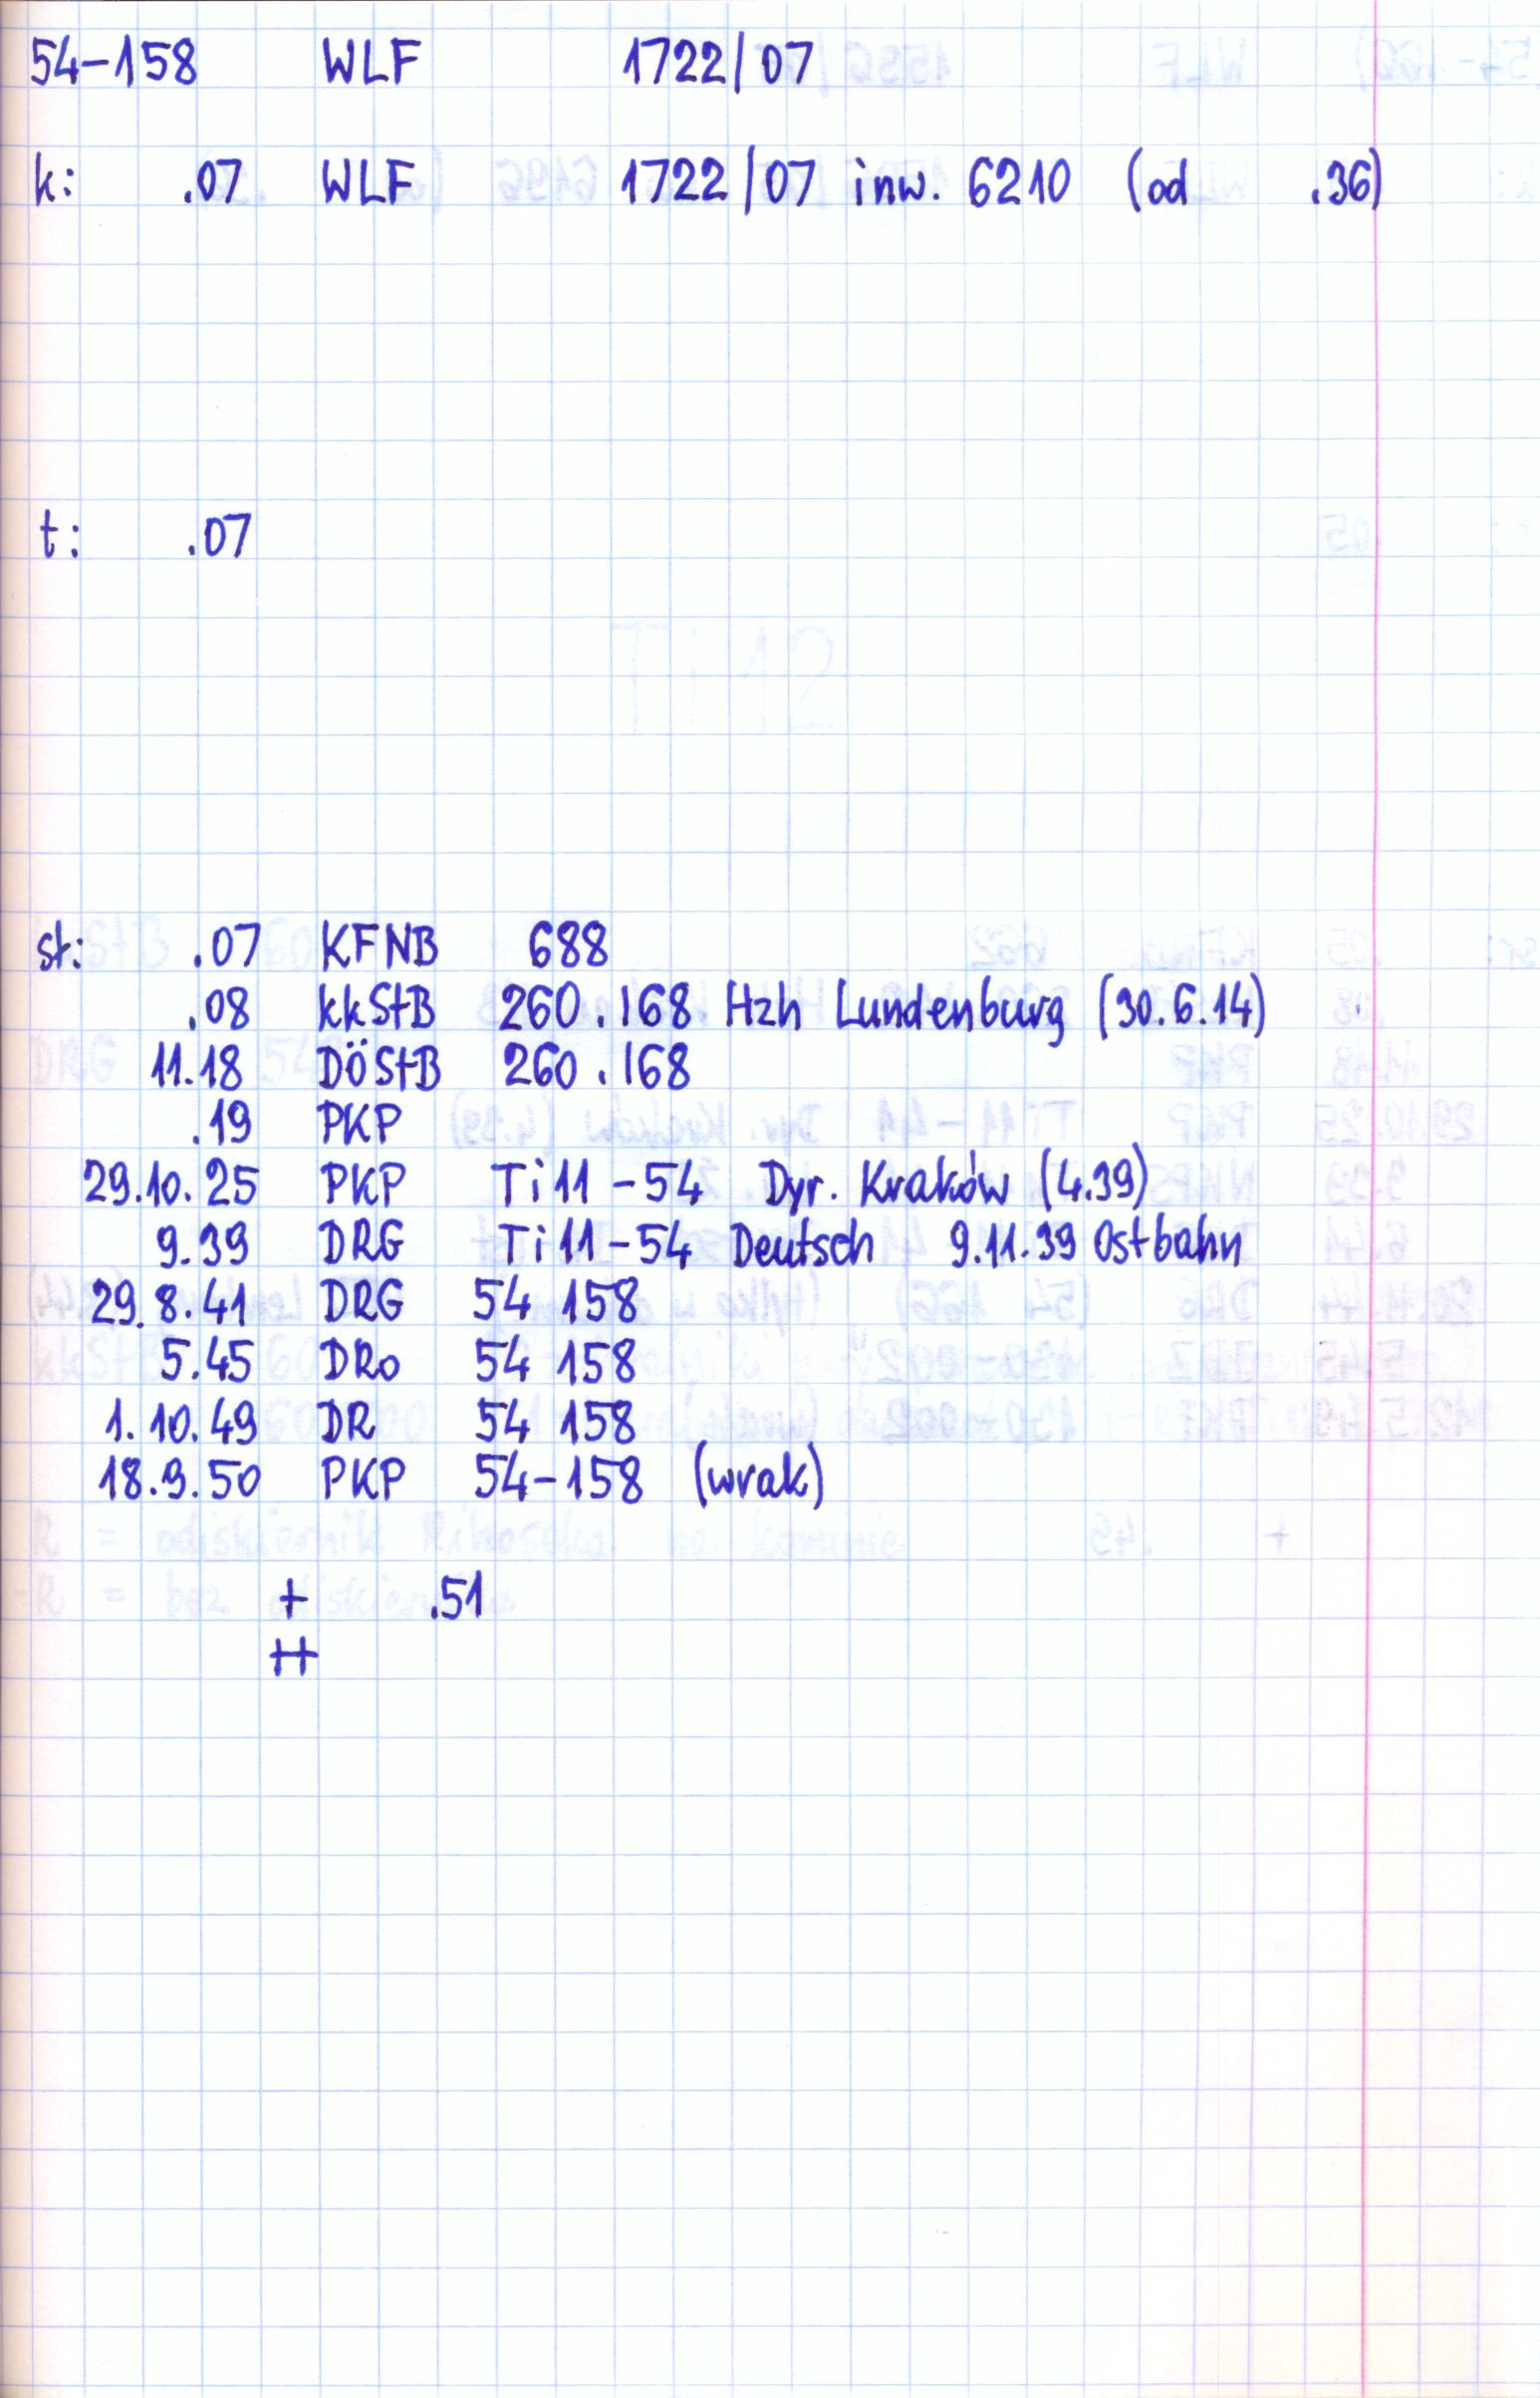 54-158 WLF 1722/07
k: .07 WLF 1722/07 inw. 6210 (od .36)
t: .07
st: .07 KFNB 688
.08 kkStB 260.168 Hzh Lundenburg (30.6.14)
11.18 DÖStB 260.168
.19 PKP
29.10.25 PKP Ti11-54 Dyr. Kraków (4.39)
9.39 DRG Ti11-54 Deutsch 9.11.39 Ostbahn
29.8.41 DRG 54 158
5.45 DRo 54 158
1.10.49 DR 54 158
18.9.50 PKP 54-158 (wrak)
+ .51
++